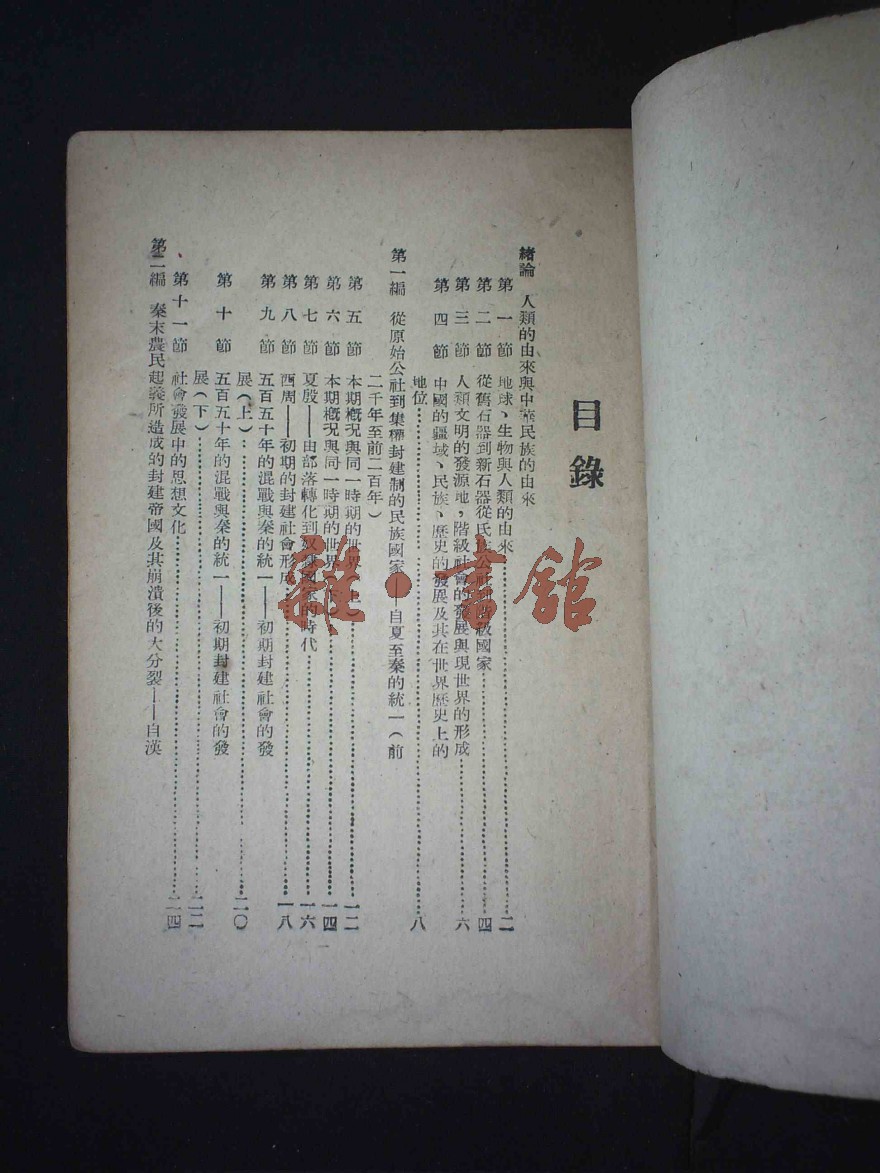 目錄
緒論 人類的由來與中華民族的由來
第一節 地球、生物與人類的由來……二
第二節 從舊石器到新石器從氏族公社到階級國家……四
第三節 人類文明的發源地，階級社會的發展與現世界的形成……六
第四節 中國的疆域、民族、歷史的發展及其在世界歷史上的
地位……八
第一編 從原始公社到集權封建制的民族國家——自夏至秦的統一（前
二千年至前二百年）
第五節 本期概況與同一時期的世界（上）……一二
第六節 本期概況與同一時期的世界（下）……一四
第七節 夏殷——由部落轉化到奴隸國家的時代……一六
第八節 西周——初期的封建社會形成……一八
第九節 五百五十年的混戰與秦的統一——初期封建社會的發
展（上）……二〇
第十節 五百五十年的混戰與秦的統一——初期封建社會的發
展（下）……二二
第十一節 社會發展中的思想文化……二四
第二編 秦末農民起義所造成的封建帝國及其崩潰後的大分裂——自漢
一
雜·書館